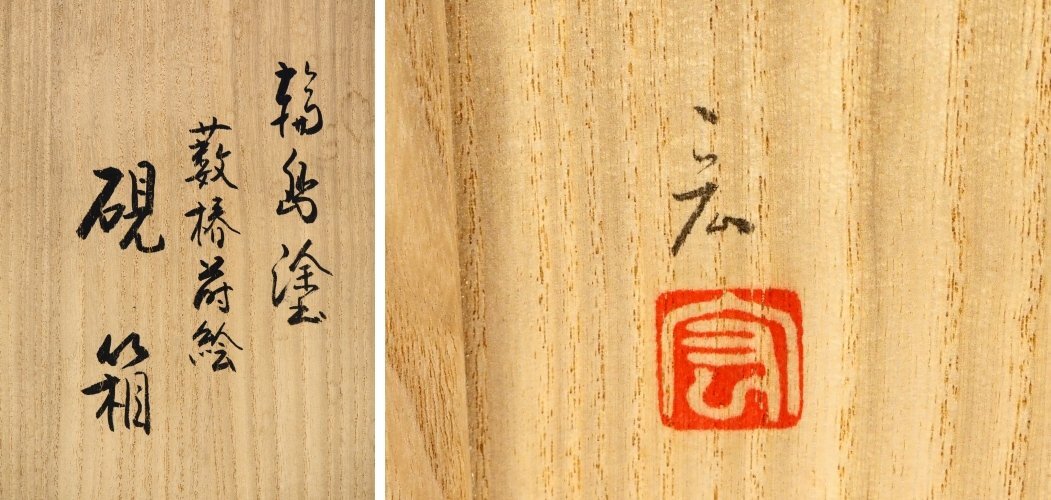 輪島塗
藪椿蒔絵
硯箱
宏